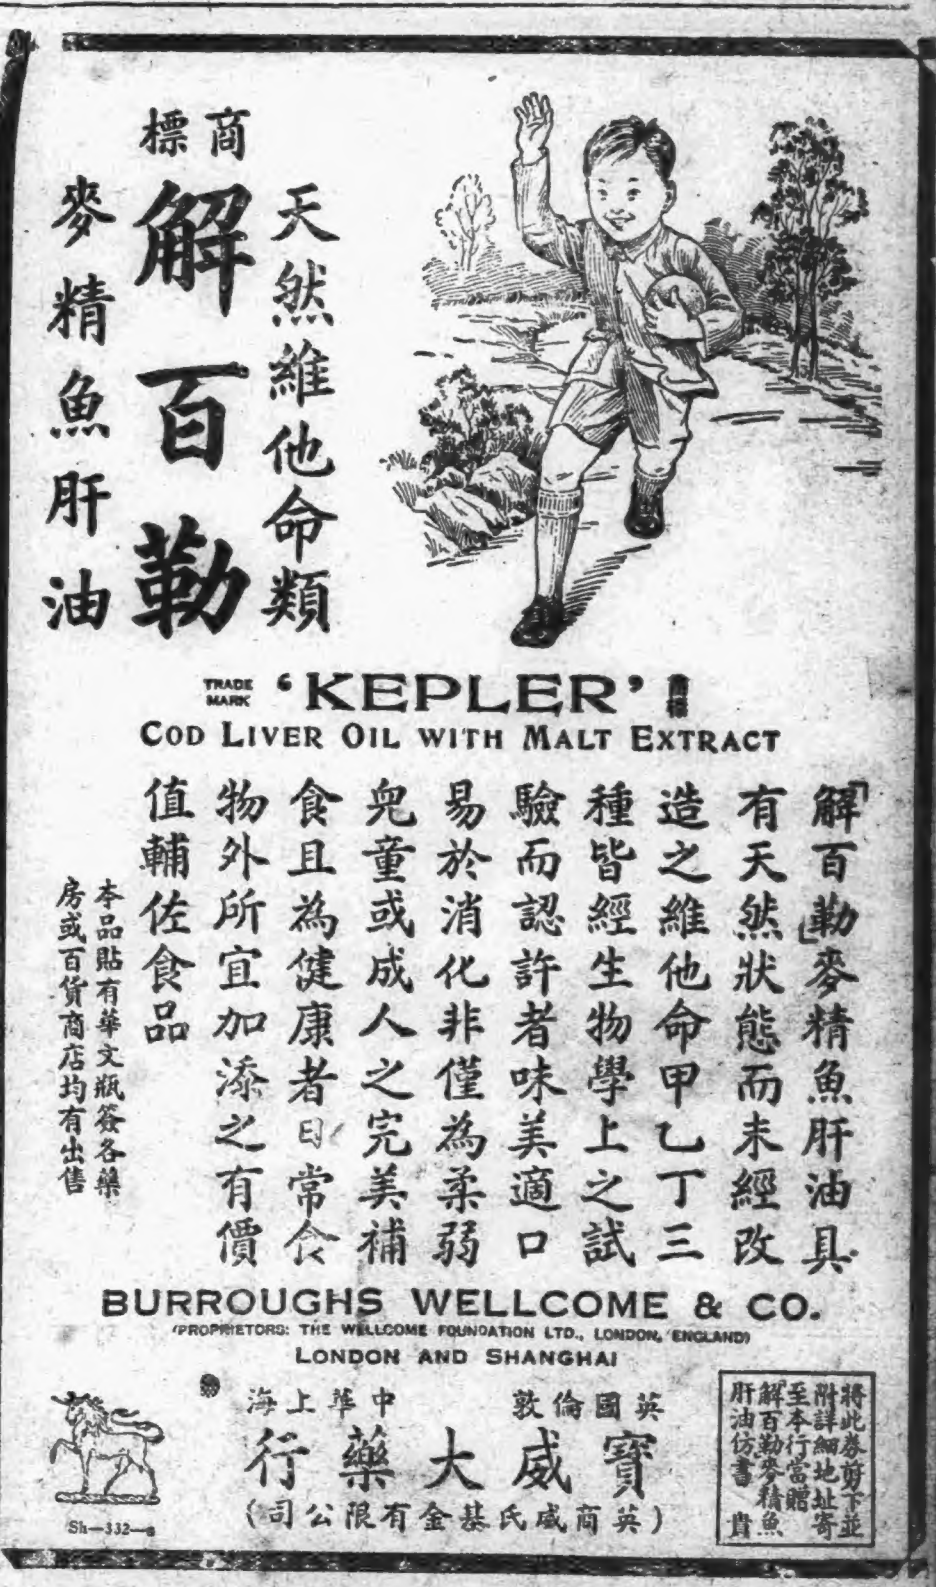 商標
天然維他命類
解百勒
麥精魚肝油
TRADE MARK 'KEPLER' 商標
COD LIVER OIL WITH MALT EXTRACT
「解百勒」麥精魚肝油具
有天然狀態而未經改
造之維他命甲乙丁三
種皆經生物學上之試
驗而認許者味美適口
易於消化非僅為柔弱
兒童或成人之完美補
食且為健康者日常食
物外所宜加添之有價
值輔佐食品
本品貼有華文瓶簽各藥
房或百貨商店均有出售
BURROUGHS WELLCOME & CO.
(PROPRIETORS: THE WELLCOME FOUNDATION LTD., LONDON, ENGLAND)
LONDON AND SHANGHAI
英國倫敦 中華上海
寶威大藥行
(英商威氏基金有限公司)
Sh—332—
將此券剪下並
附詳細地址寄
至本行當贈
「解百勒」麥精魚
肝油仿書 貴